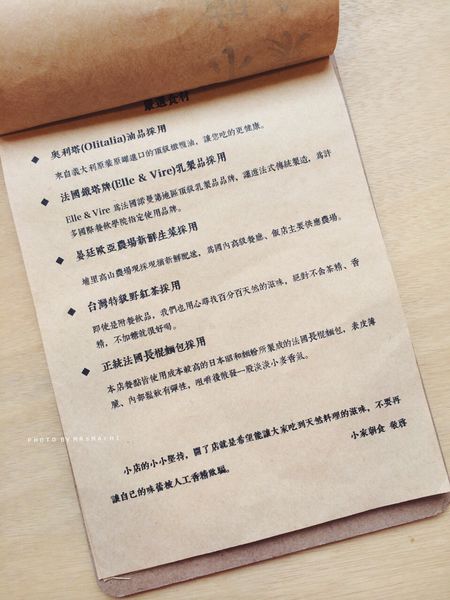 嚴選食材
◆ 奧利塔(Olitalia)油品採用
來自義大利原裝原罐進口的頂級橄欖油，讓您吃的更健康。
◆ 法國鐵塔牌(Elle & Vire)乳製品採用
Elle & Vire 為法國諾曼第地區頂級乳製品品牌，謹遵法式傳統製造，為許
多國際餐飲學院指定使用品牌。
◆ 宴廷歐亞農場新鮮生菜採用
埔里高山農場現採現摘新鮮配送，為國內高級餐廳、飯店主要供應農場。
◆ 台灣特級野紅茶採用
即使是附餐飲品，我們也用心尋找百分百天然的滋味，絕對不含茶精、香
精，不加糖就很好喝。
◆ 正統法國長棍麵包採用
本店餐點皆使用成本較高的日本昭和麵粉所製成的法國長棍麵包，表皮薄
脆、內部鬆軟有彈性，咀嚼後散發一股淡淡小麥香氣。
小店的小小堅持，開了店就是希望能讓大家吃到天然料理的滋味，不要再
讓自己的味蕾被人工香精欺騙。
小家朝食 敬啓
PHOTO BY MRSMAY.MI